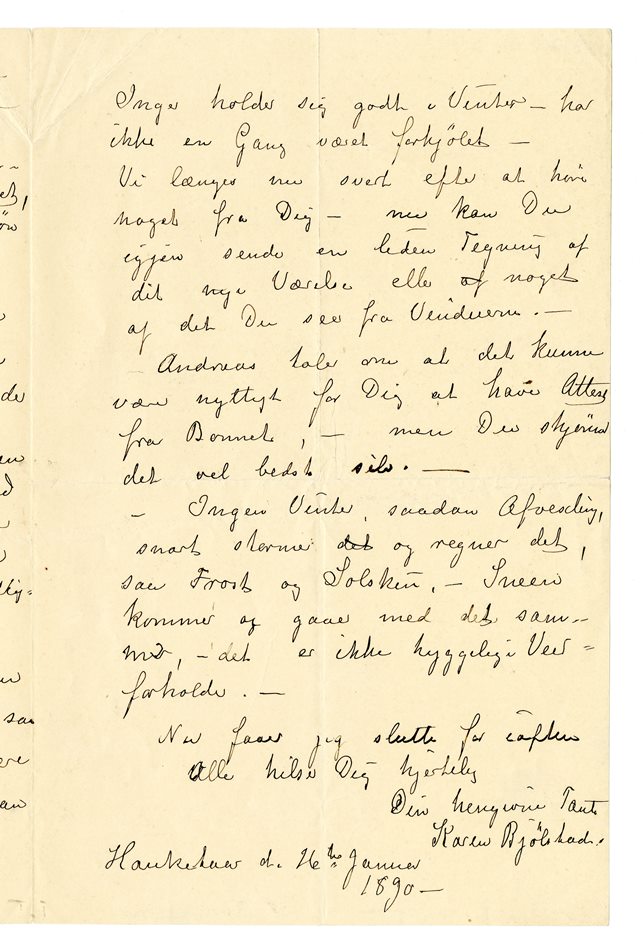 Inger holder sig godt i Vinter – har
ikke en Gang været forkjölet –
Vi længes nu svert efter at höre
noget fra Dig – nu kan Du
igjen sende en liden Tegning af
dit nye Værelse elle af noget
af det Du see fra Vinduerne. –
Andreas taler om at det kunne
være nyttigt for Dig at have Attest
fra Bonnat, – men Du skjönner
det vel bedst selv. –
– Ingen Vinter, saadan Afvexling,
snart stormer det og regner det,
saa Frost og Solskin, – Sneen
kommer og gaaer med det sam-
me, – det er ikke hyggelige Veir=
forholde. –
Nu faaer jeg slutte for iaften
Alle hilse Dig hjertelig
Din hengivne Tante
Karen Bjölstad.
d. 26th Januar
1890 –
det,
de
en
saa
ere
an